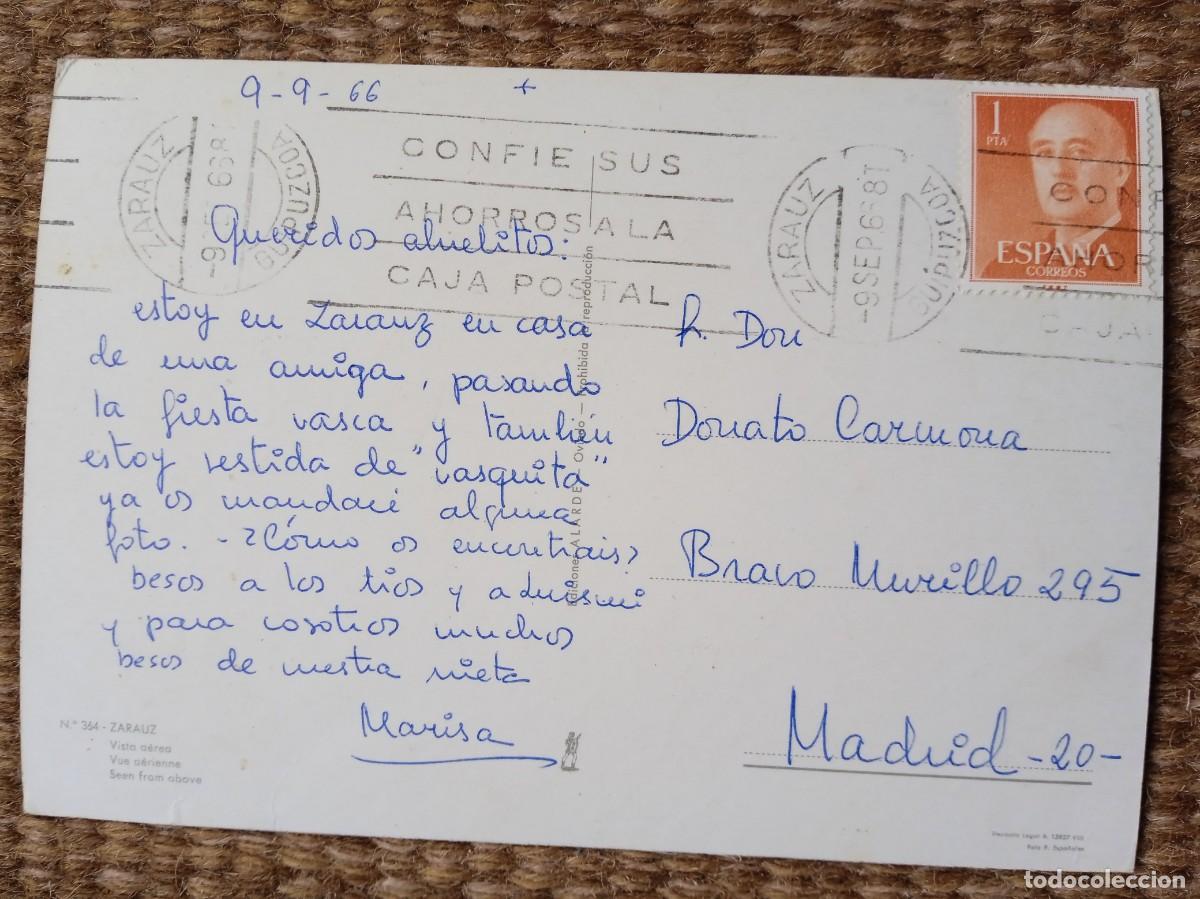 9-9-66 +
ZARAUZ
GUIPUZCOA
CONFIE SUS
AHORROS A LA
CAJA POSTAL
ZARAUZ
-9 SEP 66 8T
GUIPUZCOA
1
PTA
ESPAÑA
CORREOS
Queridos abuelitos:
estoy en Zarauz en casa
de una amiga, pasando
la fiesta vasca y también
estoy vestida de "vasquita"
ya os mandaré alguna
foto. - ¿Cómo os encontrais?
besos a los tios y a Luismi
y para vosotros muchos
besos de vuestra nieta
Marisa
Ediciones ALARDE - Oviedo - Prohibida la reproducción
Don
Donato Carmona
Bravo Murillo 295
Madrid -20-
N.º 364 - ZARAUZ
Vista aérea
Vue aérienne
Seen from above
todocoleccion